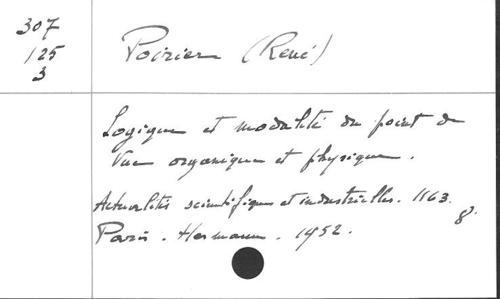 307
125
3
Poirier (René)
Logique et modalité du point de
vue organique et physique.
Actualités scientifiques et industrielles. 1163.
8°.
Paris. Hermann. 1952.